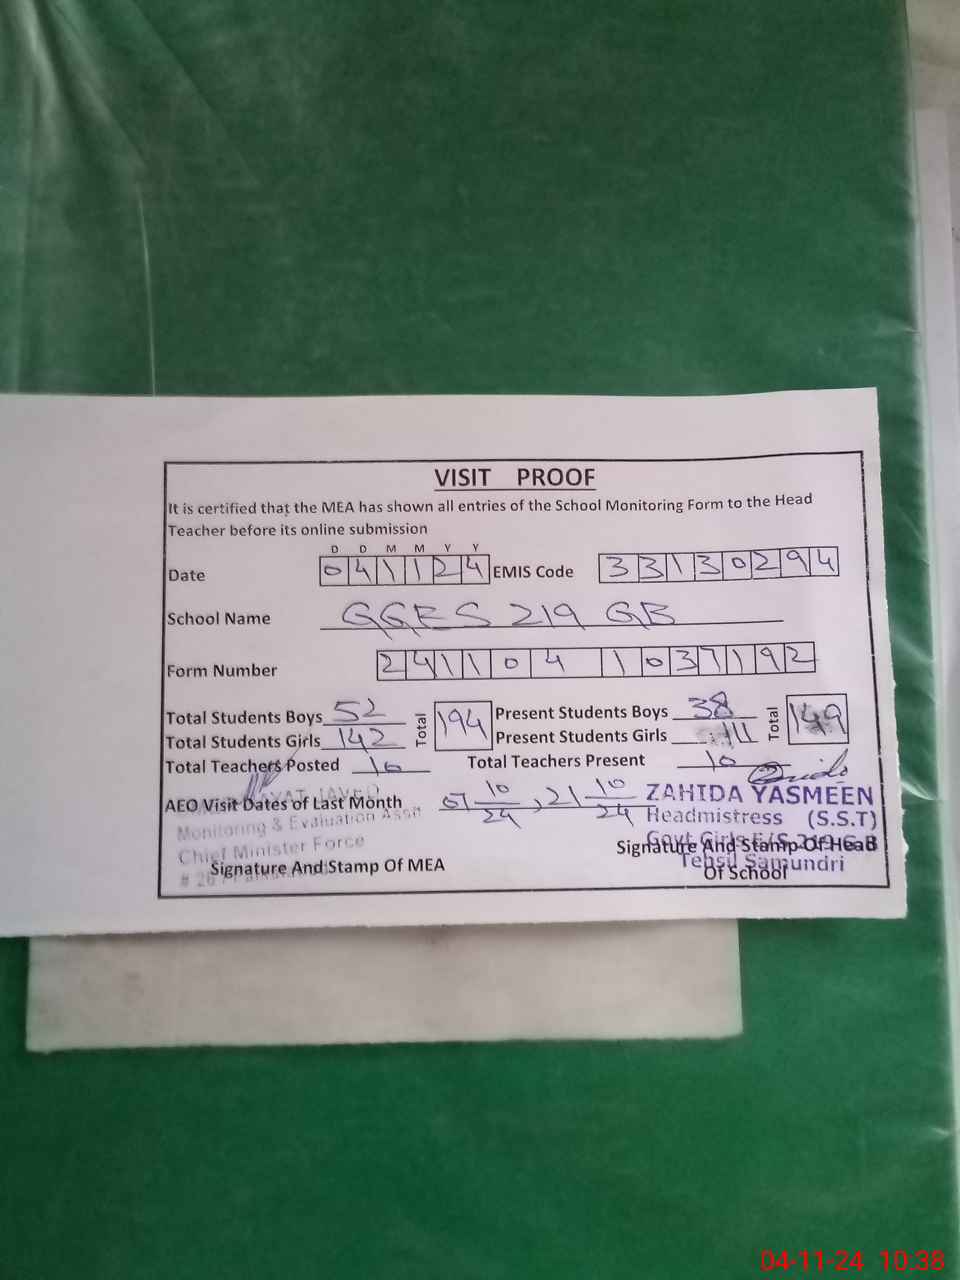 VISIT PROOF
It is certified that the MEA has shown all entries of the School Monitoring Form to the Head
Teacher before its online submission
D D M M Y Y
Date 041124 EMIS Code 33130294
School Name GGES 219 GB
Form Number 241104 1037192
Total Students Boys 52 Total 194 Present Students Boys 38 Total 149
Total Students Girls 142 Present Students Girls 111
Total Teachers Posted 10 Total Teachers Present 10
AEO Visit Dates of Last Month 07 10/24, 21 10/24
Monitoring & Evaluation Asstt
Chief Minister Force
ZAHIDA YASMEEN
Headmistress (S.S.T)
Govt Girls E/S 219 G.B
Tehsil Samundri
Signature And Stamp Of MEA
Signature And Stamp Of Head
Of School
04-11-24 10:38